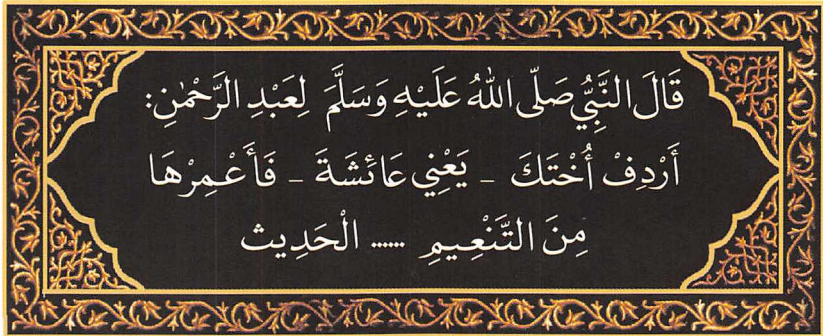 قَالَ النَّبِيُّ صَلَّى اللهُ عَلَيْهِ وَسَلَّمَ لِعَبْدِ الرَّحْمٰنِ:
أَرْدِفْ أُخْتَكَ - يَعْنِي عَائَشَةَ - فَأَعْمِرْهَا
مِنَ التَّنْعِيمِ ...... الْحَدِيث